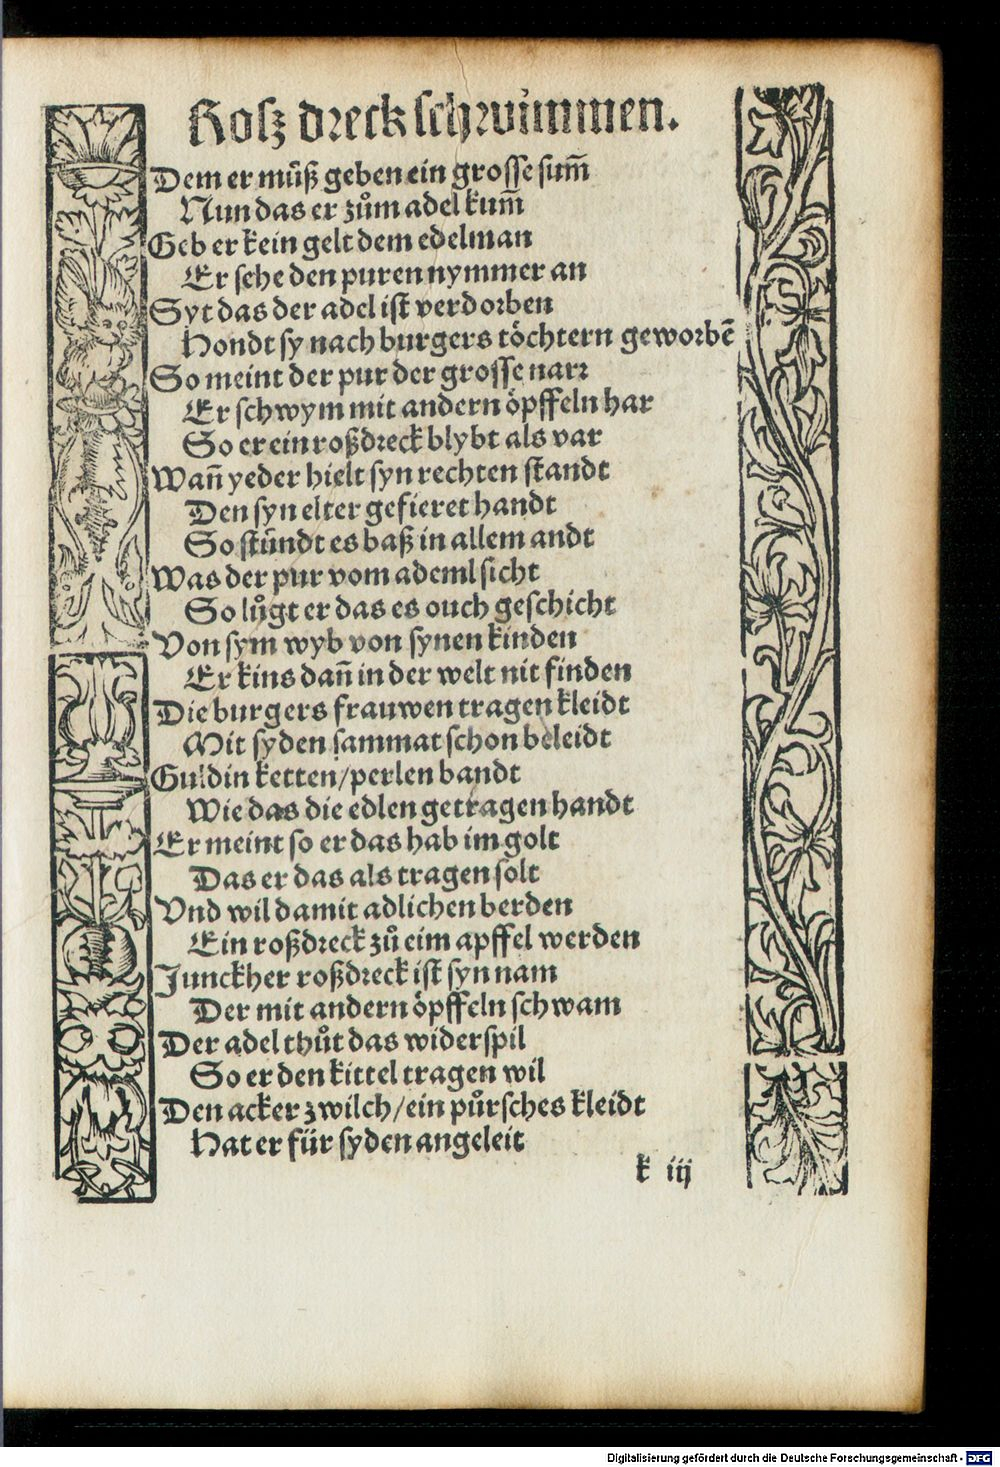 Rosz dreck schwimmen.
Dem er müß geben ein grosse sum̄
Nun das er zům adel kum̄
Geb er kein gelt dem edelman
Er sehe den puren nymmer an
Syt das der adel ist verdorben
Hondt sy nach burgers töchtern geworbē
So meint der pur der grosse narr
Er schwym mit andern öpffeln har
So er ein roßdreck blybt als var
Wan̄ yeder hielt syn rechten standt
Den syn elter gefieret handt
So stündt es baß in allem andt
Was der pur vom ademl sicht
So lůgt er das es ouch geschicht
Von sym wyb von synen kinden
Er kins dan̄ in der welt nit finden
Die burgers frauwen tragen kleidt
Mit syden sammat schon beleidt
Guldin ketten/perlen bandt
Wie das die edlen getragen handt
Er meint so er das hab im golt
Das er das als tragen solt
Vnd wil damit adlichen berden
Ein roßdreck zů eim apffel werden
Junckher roßdreck ist syn nam
Der mit andern öpffeln schwam
Der adel thůt das widerspil
So er den kittel tragen wil
Den acker zwilch/ein půrsches kleidt
Hat er für syden angeleit
k iij
Digitalisierung gefördert durch die Deutsche Forschungsgemeinschaft - DFG